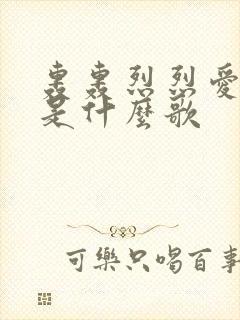 轟轟烈烈愛
是什麼歌
可樂只喝百事